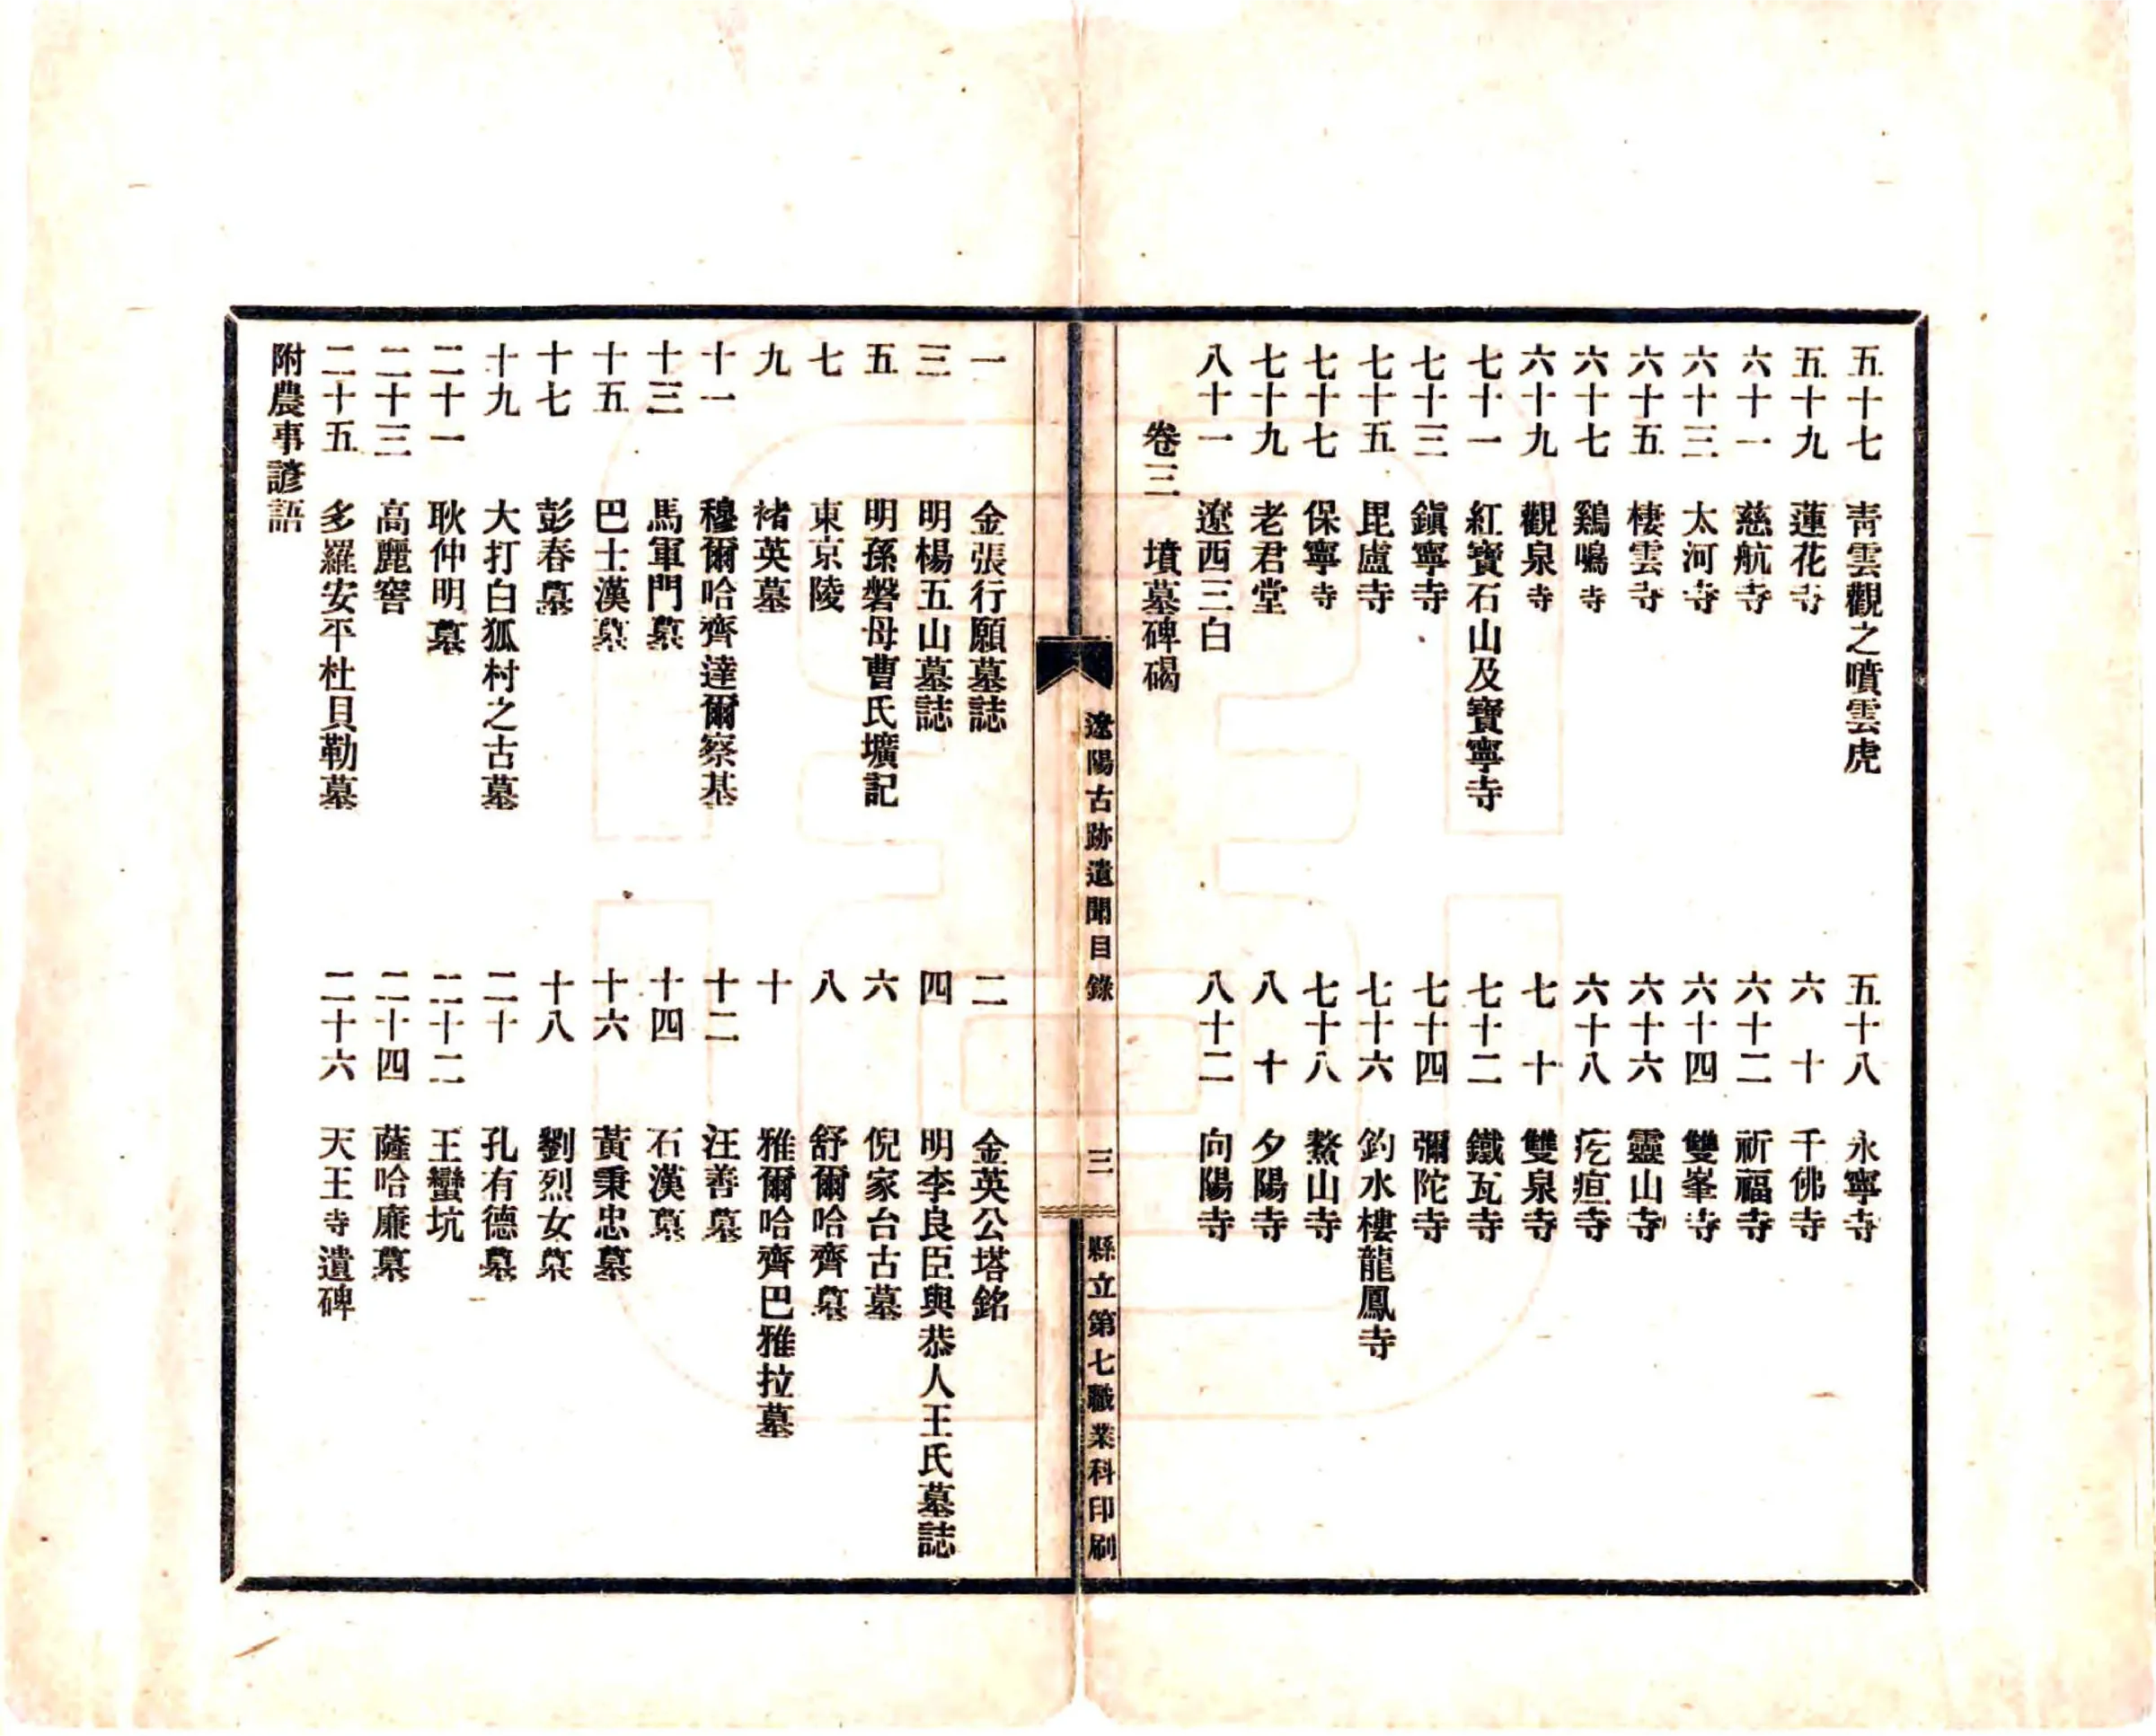 五十七　青雲觀之噴雲虎　五十八　永寧寺
五十九　蓮花寺　六十　千佛寺
六十一　慈航寺　六十二　祈福寺
六十三　太河寺　六十四　雙峯寺
六十五　棲雲寺　六十六　靈山寺
六十七　鷄鳴寺　六十八　疙疸寺
六十九　觀泉寺　七十　雙泉寺
七十一　紅寶石山及寶寧寺　七十二　鐵瓦寺
七十三　鎭寧寺　七十四　彌陀寺
七十五　毘盧寺　七十六　釣水樓龍鳳寺
七十七　保寧寺　七十八　鰲山寺
七十九　老君堂　八十　夕陽寺
八十一　遼西三白　八十二　向陽寺
卷三　墳墓碑碣
遼陽古跡遺聞目錄　三　縣立第七職業科印刷
一　金張行願墓誌　二　金英公塔銘
三　明楊五山墓誌　四　明李良臣與恭人王氏墓誌
五　明孫磐母曹氏壙記　六　倪家台古墓
七　東京陵　八　舒爾哈齊墓
九　褚英墓　十　雅爾哈齊巴雅拉墓
十一　穆爾哈齊達爾察墓　十二　汪善墓
十三　馬軍門墓　十四　石漢墓
十五　巴士漢墓　十六　黃秉忠墓
十七　彭春墓　十八　劉烈女墓
十九　大打白狐村之古墓　二十　孔有德墓
二十一　耿仲明墓　二十二　王蠻坑
二十三　高麗窖　二十四　薩哈廉墓
二十五　多羅安平杜貝勒墓　二十六　天王寺遺碑
附農事諺語